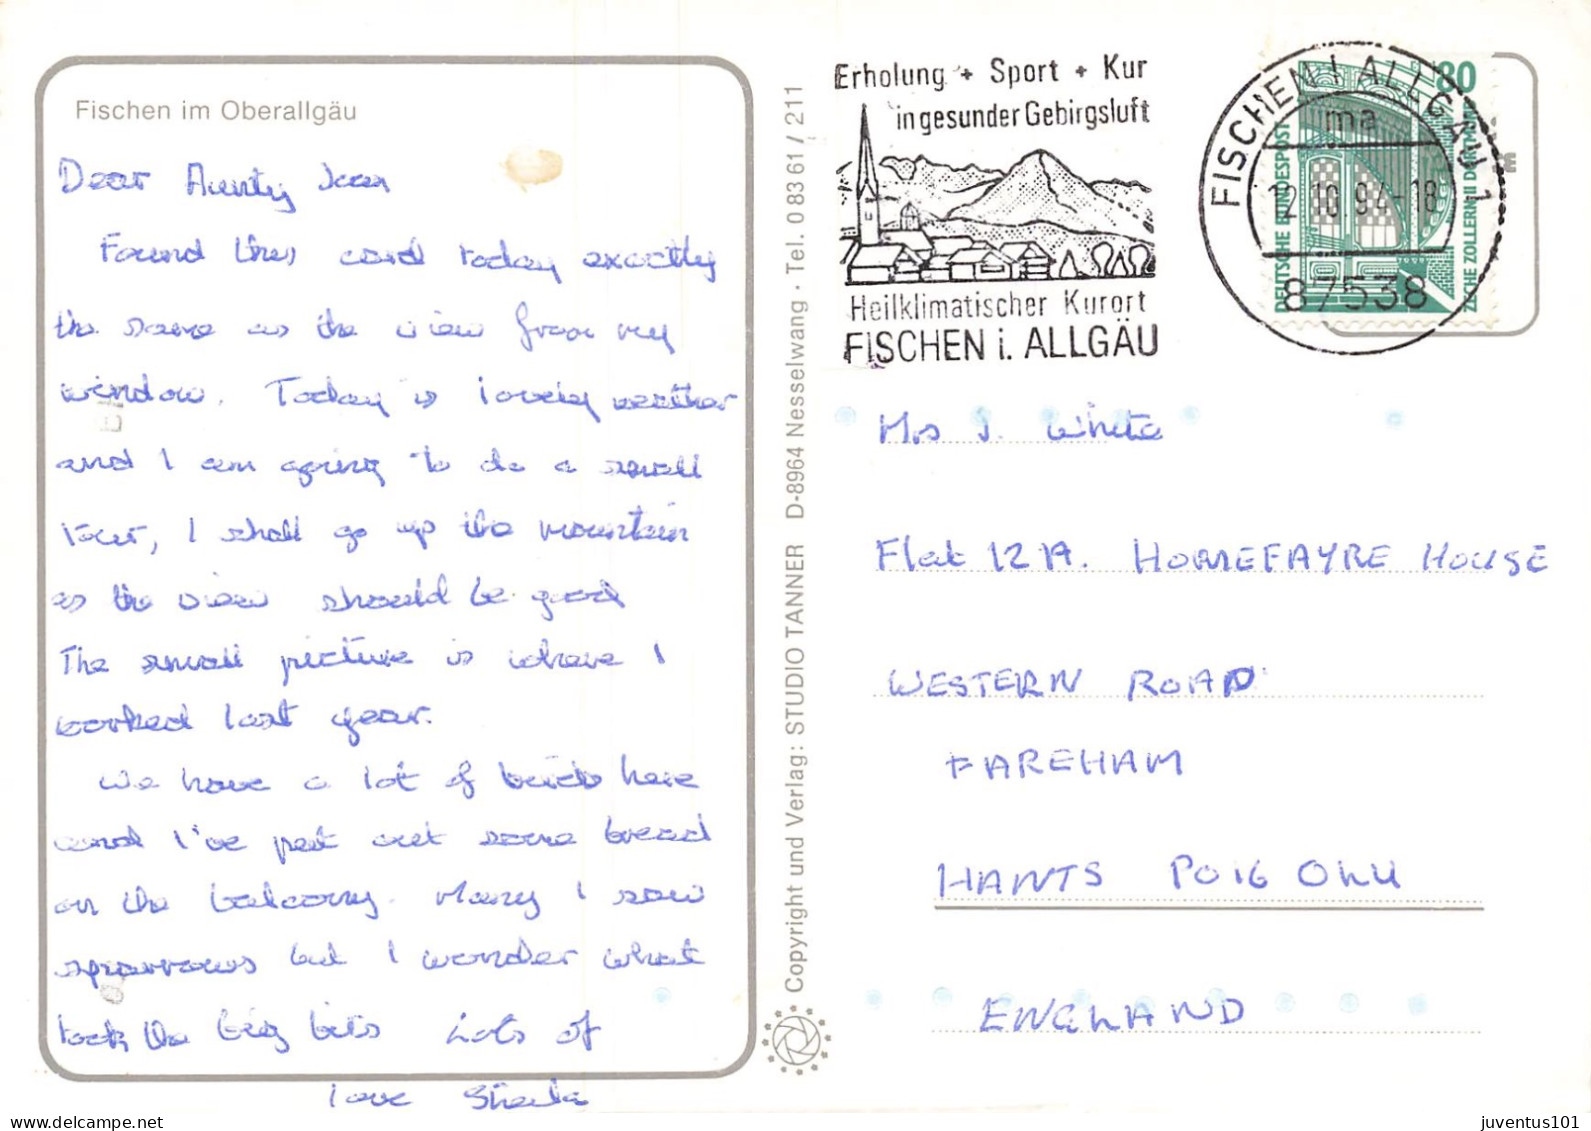 Fischen im Oberallgäu
Dear Aunty Jean
Found this card today exactly
the same as the view from my
window. Today is lovely weather
and I am going to do a small
tour, I shall go up the mountain
as the view should be good
The small picture is where I
worked last year.
We have a lot of birds here
and I've put out some bread
on the balcony. Many I saw
sparrows but I wonder what
took the big bits Lots of
love Sheila
Copyright und Verlag: STUDIO TANNER D-8964 Nesselwang · Tel. 0 83 61 / 211
Erholung + Sport + Kur
in gesunder Gebirgsluft
Heilklimatischer Kurort
FISCHEN i. ALLGÄU
FISCHEN I ALLGÄU 1
ma
12.10.94-18
87538
80
DEUTSCHE BUNDESPOST
ZECHE ZOLLERN II DORTMUND
Mrs J. White
Flat 12A. HOMEFAYRE HOUSE
WESTERN ROAD
FAREHAM
HANTS PO16 0NU
ENGLAND
juventus101